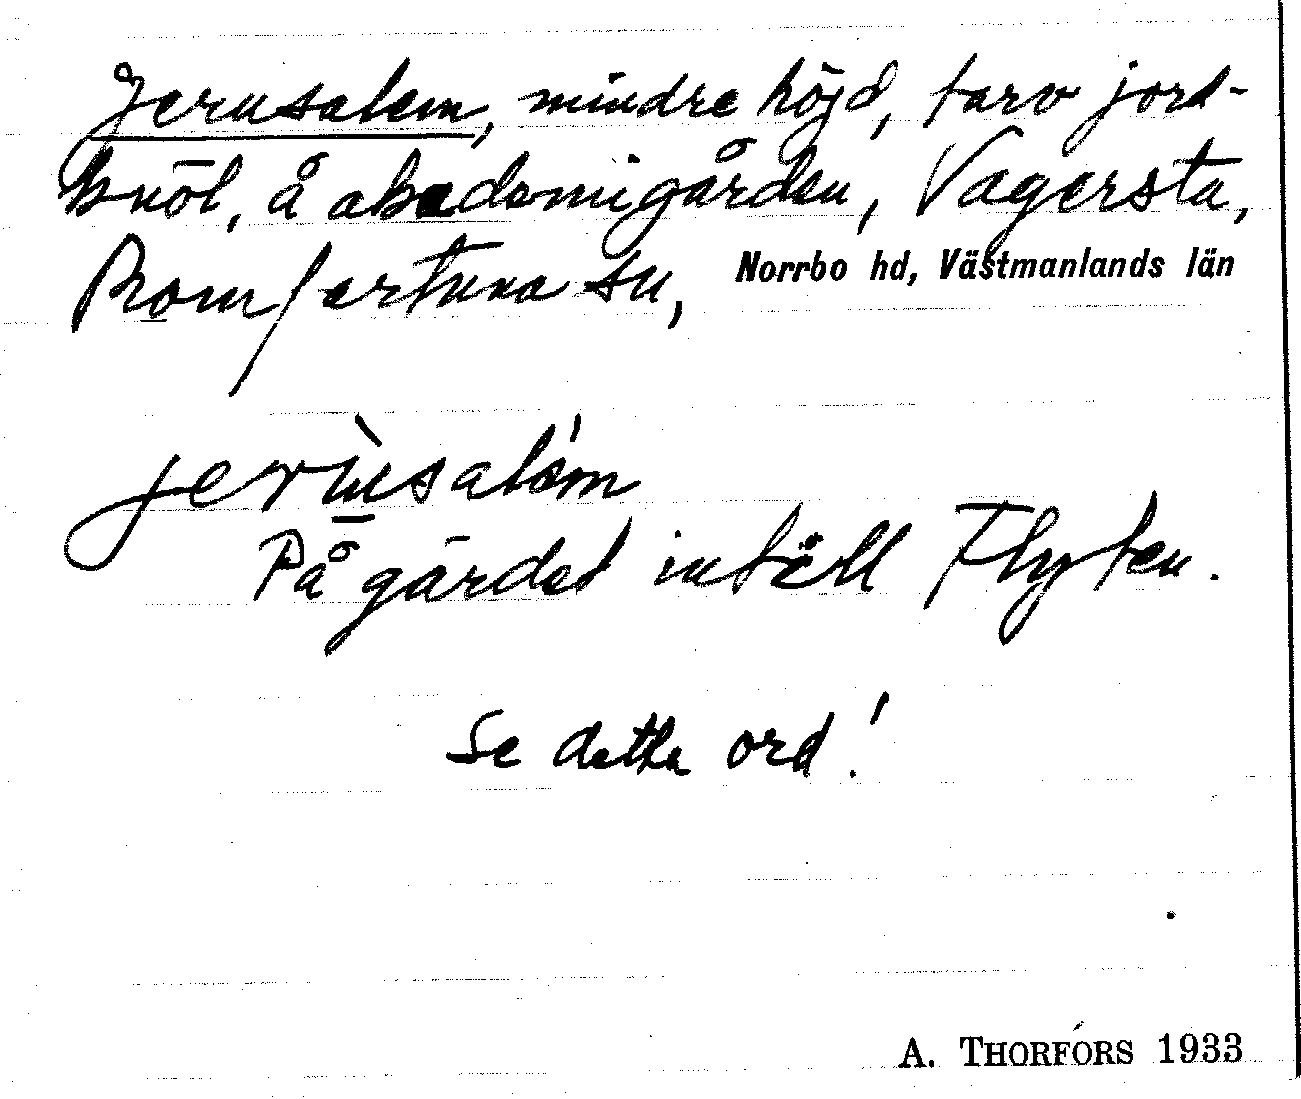 Jerusalem, mindre höjd, torv jord-
knöl, å akademigården, Vagersta,
Romfartuna sn, Norrbo hd, Västmanlands län
jerùsalém
På gärdet intill Flyten.
Se detta ord!
A. THORFORS 1933